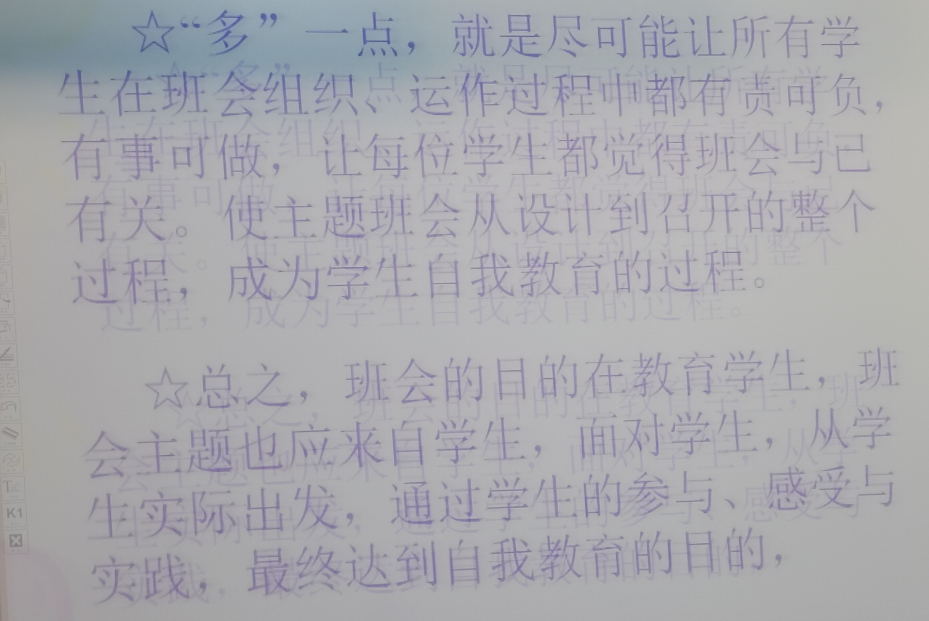 ☆“多”一点，就是尽可能让所有学
生在班会组织、运作过程中都有责可负，
有事可做，让每位学生都觉得班会与已
有关。使主题班会从设计到召开的整个
过程，成为学生自我教育的过程。
☆总之，班会的目的在教育学生，班
会主题也应来自学生，面对学生，从学
生实际出发，通过学生的参与、感受与
实践，最终达到自我教育的目的，
K1